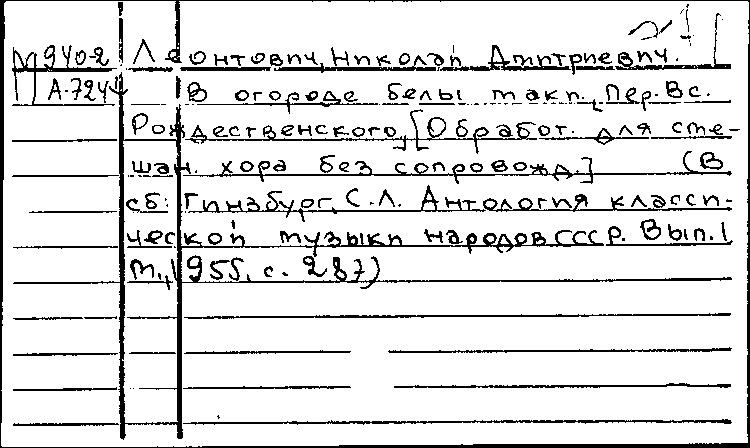 М 940-2 Леонтович, Николай Дмитриевич.
А-724 В огороде белы маки. Пер. Вс.
Рождественского, [Обработ. для сме-
шан. хора без сопровожд.] (В
сб: Гинзбург, С.Л. Антология класси-
ческой музыки народов СССР. Вып. 1
М., 1955, с. 287)